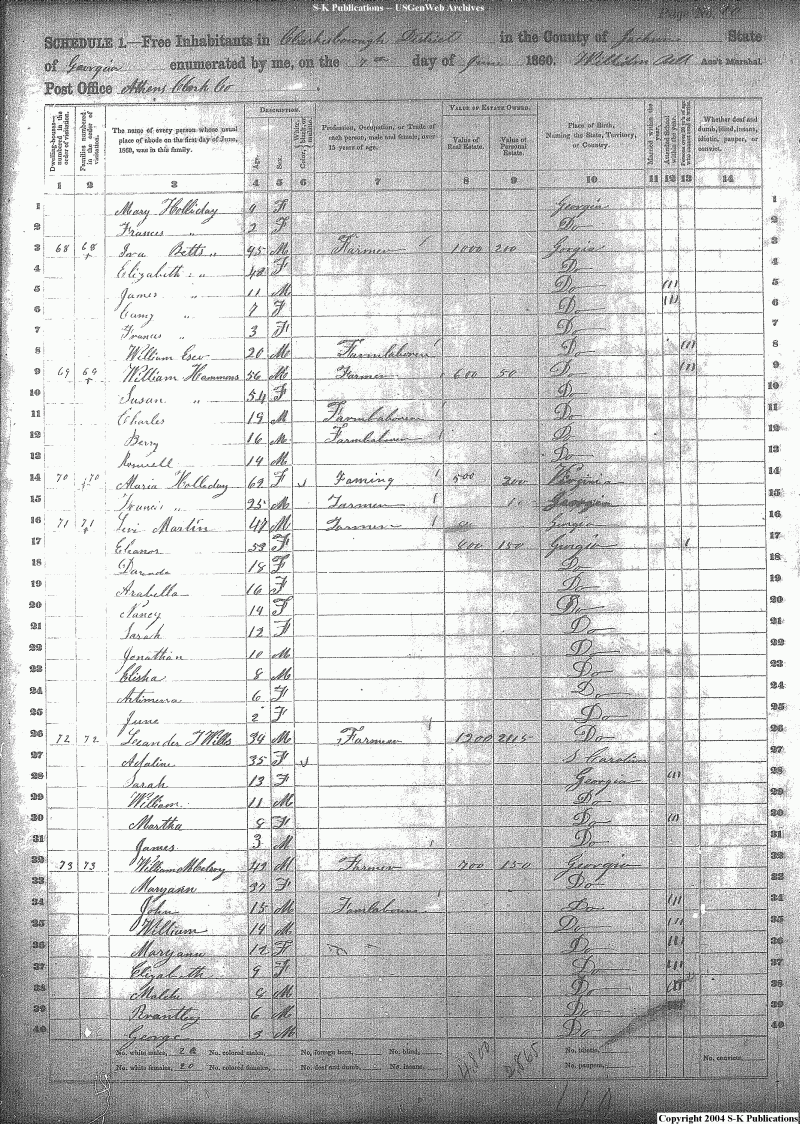 S-K Publications – USGenWeb Archives
Page No. 
SCHEDULE 1.—Free Inhabitants in Clarkesborough District in the County of Jackson State
of Georgia enumerated by me, on the 7th day of June 1860. Ass't Marshal
Post Office Athens Clark Co
DESCRIPTION.
VALUE OF ESTATE OWNED.
Dwelling-houses—numbered in the order of visitation.
Families numbered in the order of visitation.
The name of every person whose usual place of abode on the first day of June, 1860, was in this family.
Age.
Sex.
Color, {White, black, or mulatto.
Profession, Occupation, or Trade of each person, male and female, over 15 years of age.
Value of Real Estate.
Value of Personal Estate.
Place of Birth, Naming the State, Territory, or Country.
Married within the year.
Attended School within the year.
Persons over 20 y'rs of age who cannot read & write.
Whether deaf and dumb, blind, insane, idiotic, pauper, or convict.
1 2 3 4 5 6 7 8 9 10 11 12 13 14
1 Mary Holliday 9 F Georgia 1
2 Frances " 2 F Do 2
3 68 68 Betts " 45 M Farmer 1000 200 Georgia 3
4 Elizabeth " 42 F Do 4
5 James " 11 M Do 5
6 " 7 F Do 6
7 Francis " 3 F Do 7
8 William 20 M Farmlaborer Do 8
9 69 69 William Hammons 56 M Farmer 600 50 Do 9
10 Susan " 54 F Do 10
11 Charles 19 M Farmlaborer Do 11
12 Berry 16 M Farmlaborer Do 12
13 14 M Do 13
14 70 70 Maria Holleday 62 F Faming 500 200 Virginia 14
15 Francis " 25 M Farmer Georgia 15
16 71 71 Levi Martin 47 M Farmer Georgia 16
17 Eleanor 53 F 400 150 Georgia 17
18 18 F Do 18
19 Arabella 16 F Do 19
20 Nancy 14 F Do 20
21 Sarah 12 F Do 21
22 Jonathan 10 M Do 22
23 Elisha 8 M Do 23
24 6 F Do 24
25 June 2 F Do 25
26 72 72 Leander T Wills 34 M Farmer 1200 2115 Do 26
27 Adaline 35 F S Carolina 27
28 Sarah 13 F Georgia 28
29 William 11 M Do 29
30 Martha 8 F Do 30
31 James 3 M Do 31
32 73 73 William McElroy 42 M Farmer 700 150 Georgia 32
33 Maryann 37 F Do 33
34 John 15 M Farmlaborer Do 34
35 William 14 M Do 35
36 Maryann 12 F Do 36
37 Elizabeth 9 F Do 37
38 8 M Do 38
39 Brantley 6 M Do 39
40 George 3 M Do 40
No. white males, No. colored males, No. foreign born, No. blind, No. idiotic,
No. white females, 20 No. colored females, No. deaf and dumb, No. insane, No. paupers, No. convicts,
4800 2865
Copyright 2004 S-K Publications